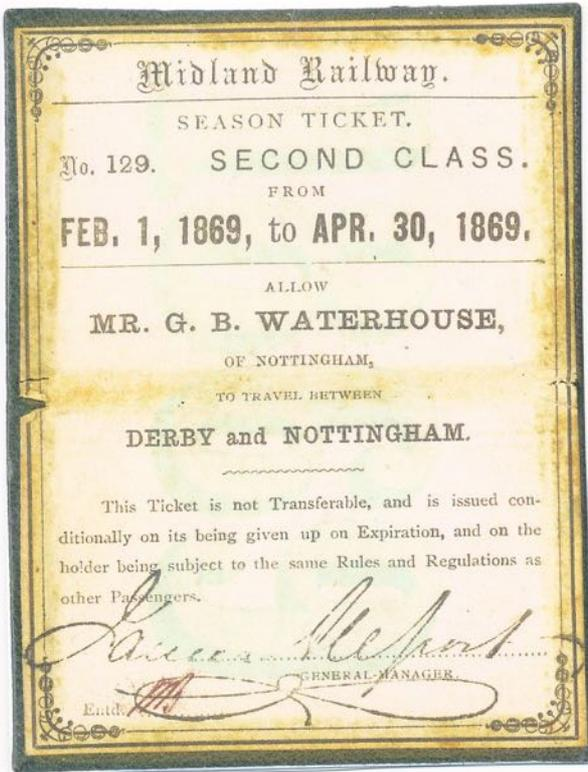 Midland Railway.
SEASON TICKET.
No. 129. SECOND CLASS.
FROM
FEB. 1, 1869, to APR. 30, 1869.
ALLOW
MR. G. B. WATERHOUSE,
OF NOTTINGHAM,
TO TRAVEL BETWEEN
DERBY and NOTTINGHAM.
This Ticket is not Transferable, and is issued con-
ditionally on its being given up on Expiration, and on the
holder being subject to the same Rules and Regulations as
other Passengers.
James Allport
GENERAL-MANAGER.
Entd.